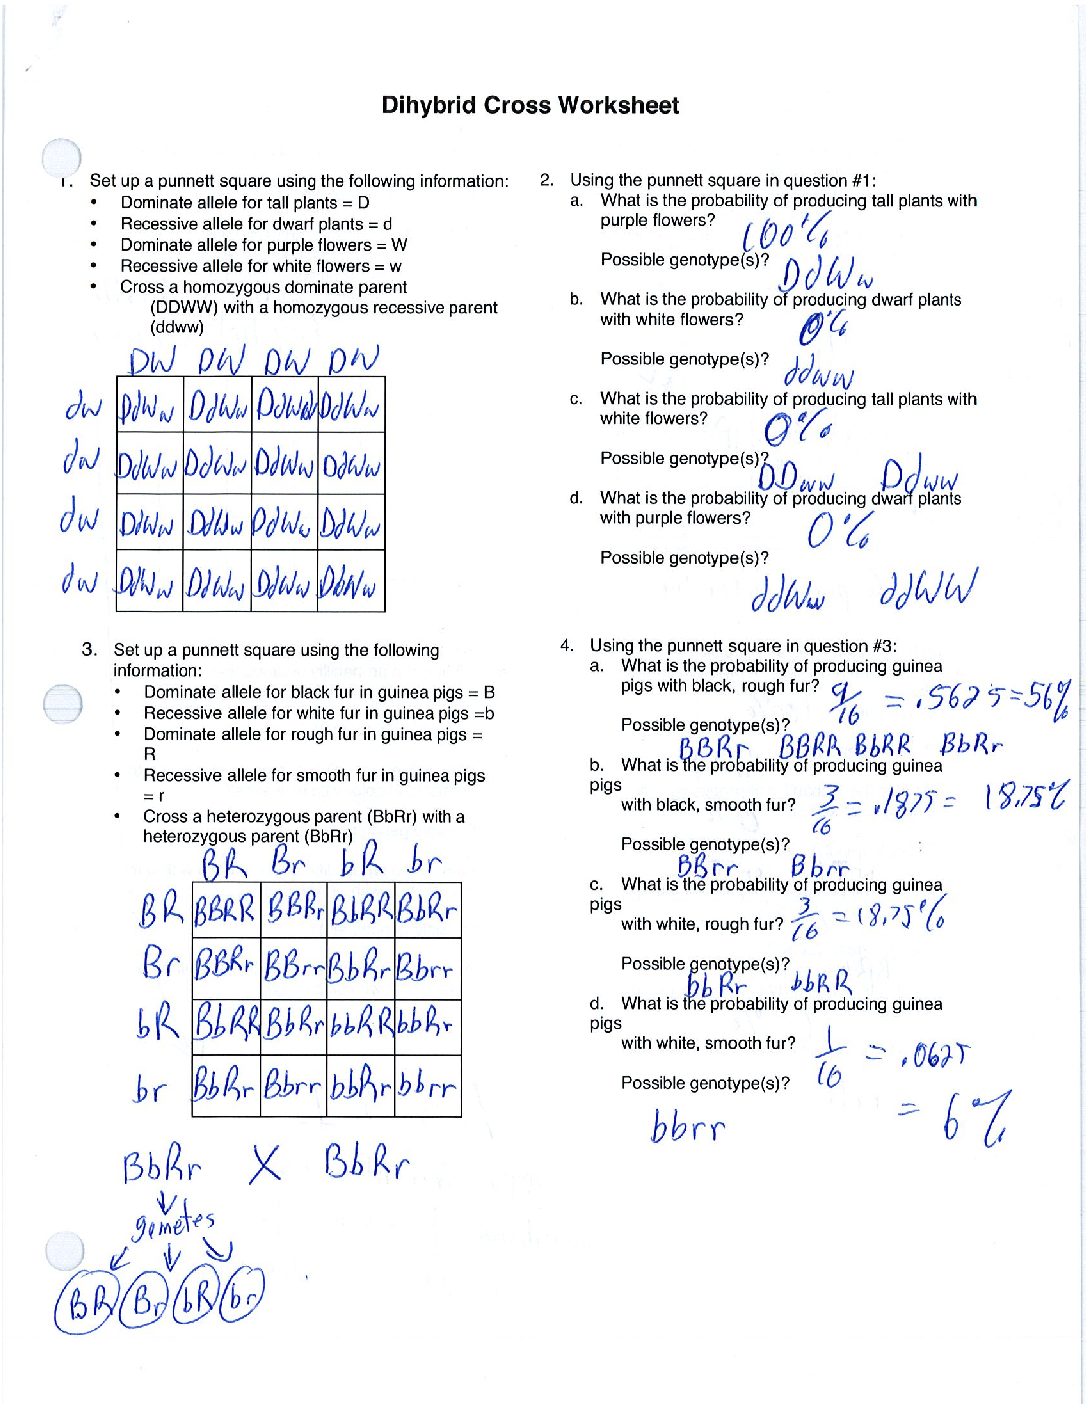 Dihybrid Cross Worksheet
1. Set up a punnett square using the following information:
• Dominate allele for tall plants = D
• Recessive allele for dwarf plants = d
• Dominate allele for purple flowers = W
• Recessive allele for white flowers = w
• Cross a homozygous dominate parent
(DDWW) with a homozygous recessive parent
(ddww)
DW DW DW DW
dw DdWw DdWw DdWw DdWw
dw DdWw DdWw DdWw DdWw
dw DdWw DdWw DdWw DdWw
dw DdWw DdWw DdWw DdWw
2. Using the punnett square in question #1:
a. What is the probability of producing tall plants with
purple flowers? 100%
Possible genotype(s)? DdWw
b. What is the probability of producing dwarf plants
with white flowers? 0%
Possible genotype(s)? ddww
c. What is the probability of producing tall plants with
white flowers? 0%
Possible genotype(s)? DDww Ddww
d. What is the probability of producing dwarf plants
with purple flowers? 0%
Possible genotype(s)?
ddWw ddWW
3. Set up a punnett square using the following
information:
• Dominate allele for black fur in guinea pigs = B
• Recessive allele for white fur in guinea pigs =b
• Dominate allele for rough fur in guinea pigs =
R
• Recessive allele for smooth fur in guinea pigs
= r
• Cross a heterozygous parent (BbRr) with a
heterozygous parent (BbRr)
BR Br bR br
BR BBRR BBRr BbRR BbRr
Br BBRr BBrr BbRr Bbrr
bR BbRR BbRr bbRR bbRr
br BbRr Bbrr bbRr bbrr
BbRr X BbRr
gametes
BR Br bR br
4. Using the punnett square in question #3:
a. What is the probability of producing guinea
pigs with black, rough fur? 9/16 = .5625 = 56%
Possible genotype(s)?
BBRr BBRR BbRR BbRr
b. What is the probability of producing guinea
pigs
with black, smooth fur? 3/16 = .1875 = 18.75%
Possible genotype(s)?
BBrr Bbrr
c. What is the probability of producing guinea
pigs
with white, rough fur? 3/16 = 18.75%
Possible genotype(s)?
bbRr bbRR
d. What is the probability of producing guinea
pigs
with white, smooth fur? 1/16 = .0625
Possible genotype(s)?
= 6%
bbrr